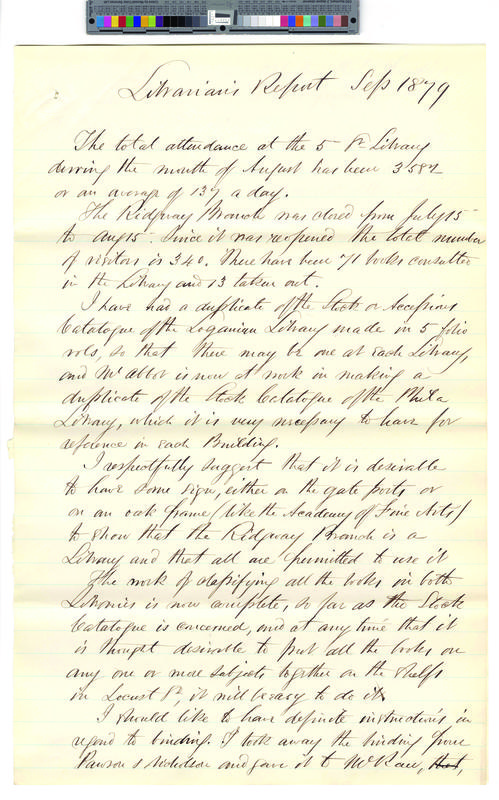 Librarian's Report Sep 1879
The total attendance at the 5 St Library
durring the month of August has been 3582
or an average of 137 a day.
The Ridgway Branch was closed from July 15
to Aug 15. Since it was reopened the total number
of visitors is 340. There have been 71 books consulted
in the Library and 13 taken out.
I have had a duplicate of the Stock or Accessions
Catalogue of the Loganian Library made in 5 folio
vols, so that there may be one at each Library,
and Mr Abbot is now at work in making a
duplicate of the Stock Catalogue of the Phila
Library, which it is very necessary to have for
reference in each Building.
I respectfully suggest that it is desirable
to have some sign, either on the gate posts or
on an oak frame (like the Academy of Fine Arts)
to show that the Ridgway Branch is a
Library and that all are permitted to use it
The work of classifying all the books in both
Libraries is now complete, so far as the Stock
Catalogue is concerned, and at any time that it
is thought desirable to put all the books on
any one or more subjects together on the shelfs
in Locust St, it will be easy to do it.
I should like to have definite instructions in
regard to binding. I took away the binding from
Pawson & Nicholson and gave it to